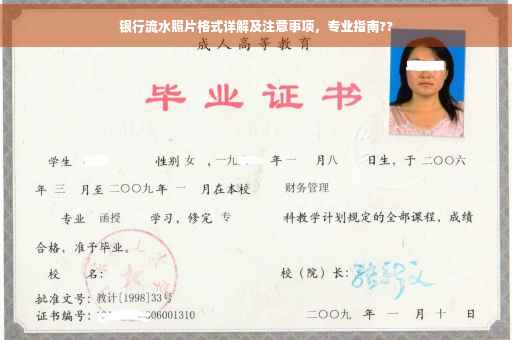 银行流水照片格式详解及注意事项，专业指南??
成人高等教育
毕业证书
学生 性别 女 ，一九 年 一 月八 日生，于 二〇〇六
年 三 月至 二〇〇九 年 一 月在本校 财务管理
专业 函授 学习，修完 专 科教学计划规定的全部课程，成绩
合格，准予毕业。
校 名： 校（院）长：
批准文号：教计[1998]33号
证书编号： 06001310 二〇〇九 年 一 月 十 日